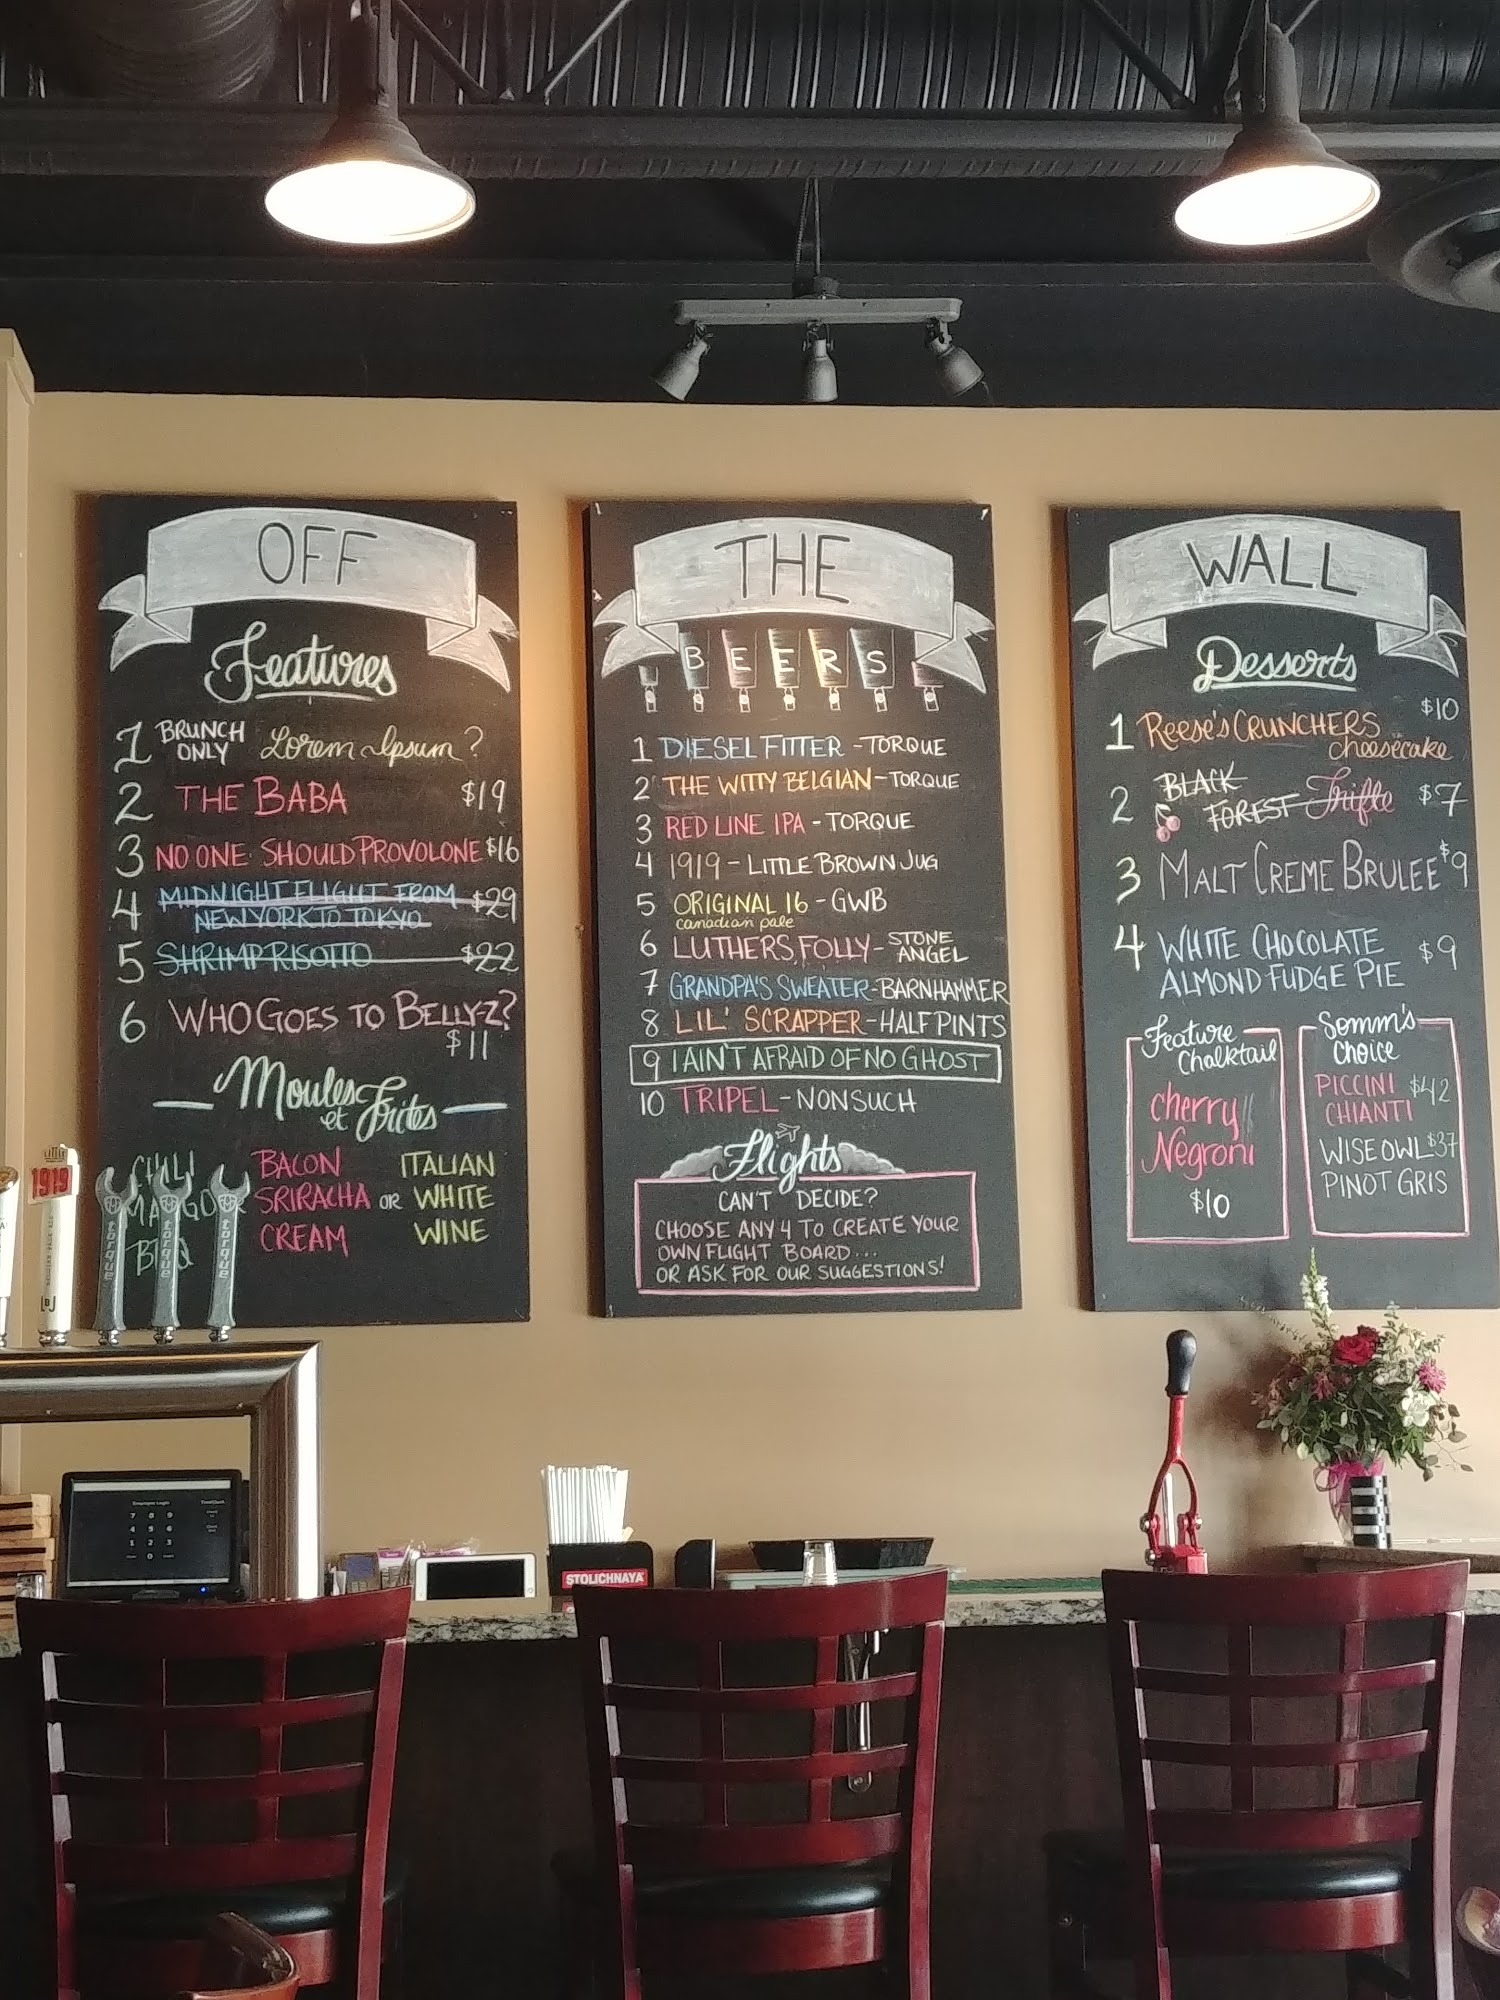 OFF
Features
1 BRUNCH ONLY Lorem Ipsum?
2 THE BABA $19
3 NO ONE SHOULD PROVOLONE $16
4 MIDNIGHT FLIGHT FROM $29
NEW YORK TO TOKYO
5 SHRIMP RISOTTO $22
6 WHO GOES TO BELLY-Z?
$11
Moules
et Frites
CHILI
MANGO
BBQ
BACON
SRIRACHA
CREAM
OR
ITALIAN
WHITE
WINE
THE
BEERS
1 DIESEL FITTER - TORQUE
2 THE WITTY BELGIAN - TORQUE
3 RED LINE IPA - TORQUE
4 1919 - LITTLE BROWN JUG
5 ORIGINAL 16 - GWB
canadian pale
6 LUTHERS FOLLY - STONE ANGEL
7 GRANDPA'S SWEATER - BARNHAMMER
8 LIL' SCRAPPER - HALF PINTS
9 I AIN'T AFRAID OF NO GHOST
10 TRIPEL - NONSUCH
Flights
CAN'T DECIDE?
CHOOSE ANY 4 TO CREATE YOUR
OWN FLIGHT BOARD...
OR ASK FOR OUR SUGGESTIONS!
WALL
Desserts
1 REESE'S CRUNCHERS $10
cheesecake
2 BLACK
FOREST Trifle $7
3 MALT CREME BRULEE $9
4 WHITE CHOCOLATE
ALMOND FUDGE PIE $9
Feature
Chalktail
cherry
Negroni
$10
Somm's
Choice
PICCINI $42
CHIANTI
WISE OWL $37
PINOT GRIS
1919
torque
torque
torque
Employee Login
7 8 9
4 5 6
1 2 3
0
STOLICHNAYA